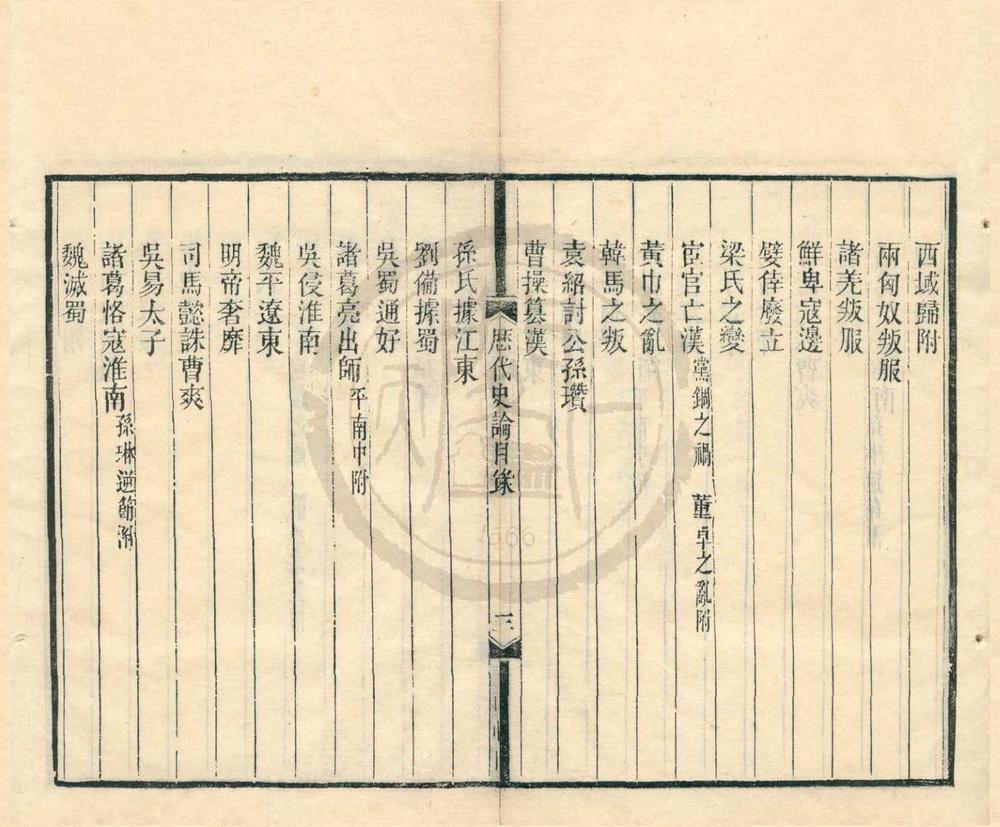 西域歸附
兩匈奴叛服
諸羌叛服
鮮卑寇邊
嬖倖廢立
梁氏之變
宦官亡漢 黨錮之禍 董卓之亂附
黃巾之亂
韓馬之叛
袁紹討公孫瓚
曹操篡漢
歷代史論目錄
三
孫氏據江東
劉備據蜀
吳蜀通好
諸葛亮出師 平南中附
吳侵淮南
魏平遼東
明帝奢靡
司馬懿誅曹爽
吳易太子
諸葛恪寇淮南 孫琳逆節附
魏滅蜀